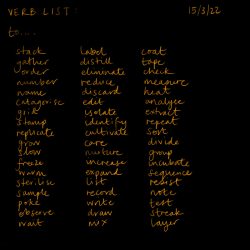 VERB LIST: 15/3/22
to...
stack label coat
gather distill tape
order eliminate check
number reduce measure
name discard heat
catagorise edit analyse
grid isolate extract
stamp identify repeat
replicate cultivate sort
grow care divide
slow nurture group
freeze increase incubate
warm expand sequence
sterilise lift resist
sample record note
poke write test
observe draw streak
wait mix layer